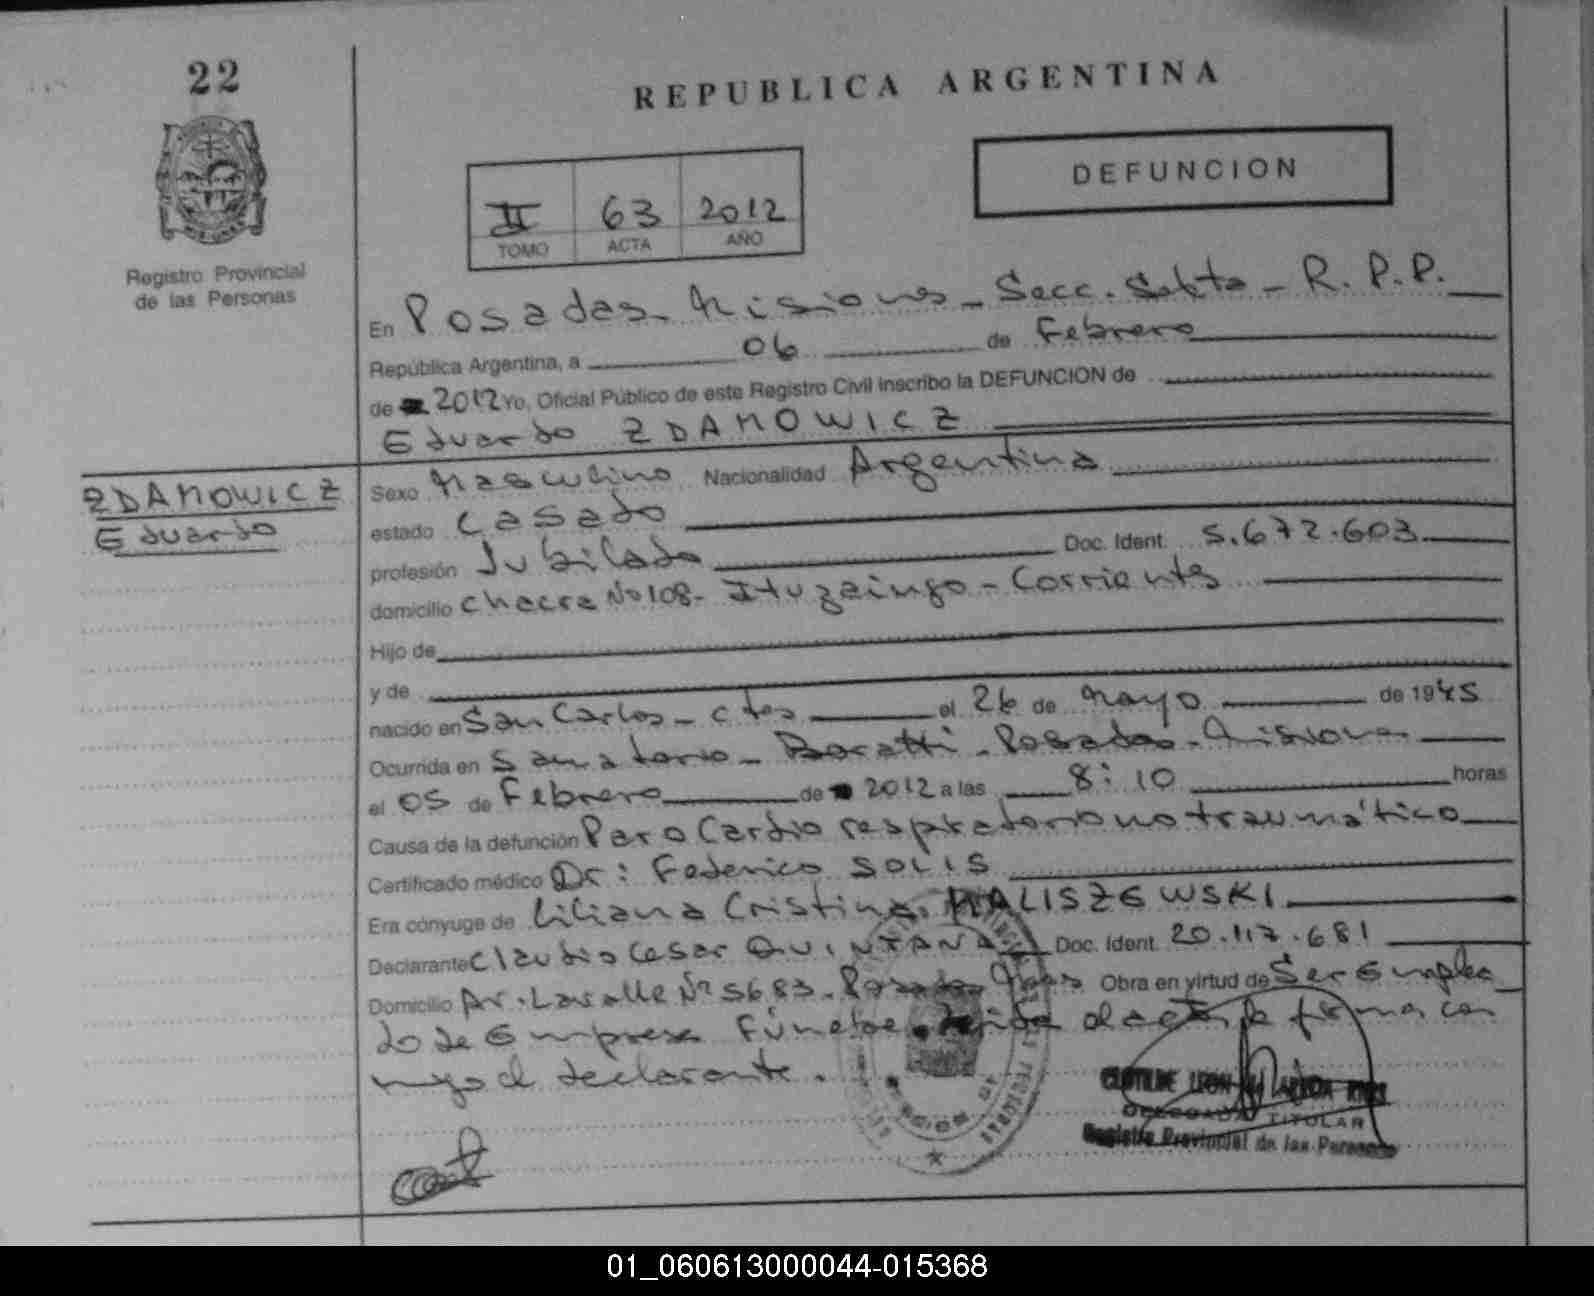 22
REPUBLICA ARGENTINA
DEFUNCION
II 63 2012
TOMO ACTA AÑO
Registro Provincial
de las Personas
En Posadas Misiones - Secc. Sexta - R.P.P.
República Argentina, a 06 de Febrero
de 2012 Yo, Oficial Público de este Registro Civil inscribo la DEFUNCION de
Eduardo ZDANOWICZ
ZDANOWICZ
Eduardo
Sexo Masculino Nacionalidad Argentina
estado Casado
profesión Jubilado Doc. Ident. 5.672.603
domicilio Chacra Nº 108 - Ituzaingo - Corrientes
Hijo de
y de
nacido en San Carlos - ctes el 26 de Mayo de 1945
Ocurrida en Sanatorio - Boratti - Posadas - Misiones
el 05 de Febrero de 2012 a las 8:10 horas
Causa de la defunción Paro Cardio respiratorio no traumático
Certificado médico Dr: Federico SOLIS
Era cónyuge de Liliana Cristina MALISZEWSKI
Declarante Claudio Cesar QUINTANA Doc. Ident. 20.117.681
Domicilio Av. Lavalle Nº 5683 - Posadas Mnes Obra en virtud de Ser emplea
do de Empresa Fúnebre. Leída el acta la firma con
migo el declarante.
CLOTILDE LEON
DELEGADA TITULAR
Registro Provincial de las Personas
01_060613000044-015368